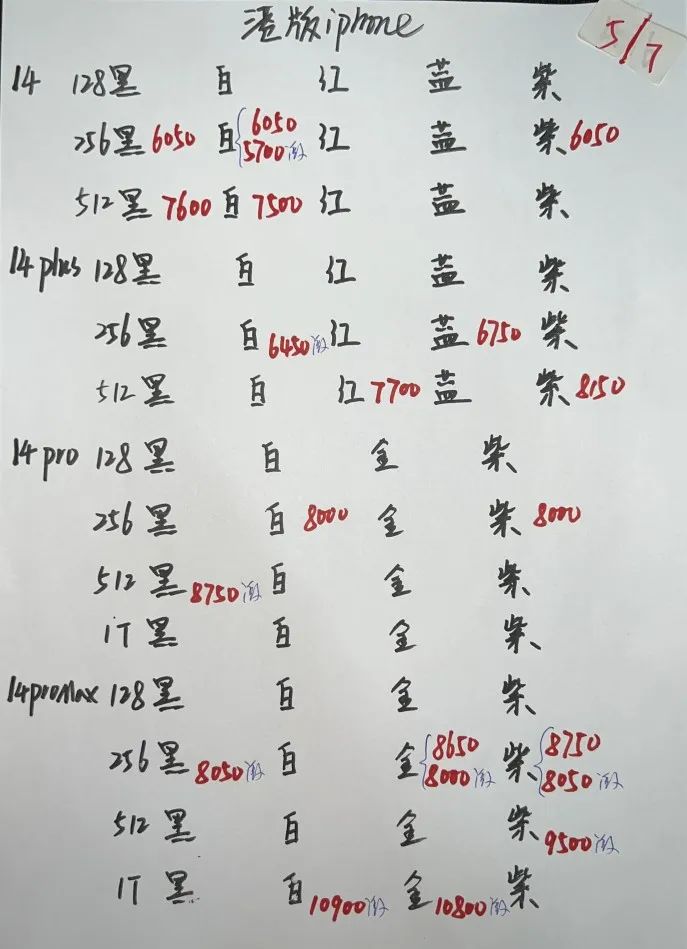 港版iphone
5/7
14 128黑 白 红 蓝 紫
256黑 6050 白 {6050 5700激 红 蓝 紫 6050
512黑 7600 白 7500 红 蓝 紫
14plus 128黑 白 红 蓝 紫
256黑 白 6450激 红 蓝 6750 紫
512黑 白 红 7700 蓝 紫 8150
14pro 128黑 白 金 紫
256黑 白 8000 金 紫 8000
512黑 8750激 白 金 紫
1T黑 白 金 紫
14promax 128黑 白 金 紫
256黑 8050激 白 金 {8650 8000激 紫 {8750 8050激
512黑 白 金 紫 9500激
1T黑 白 10900激 金 10800激 紫